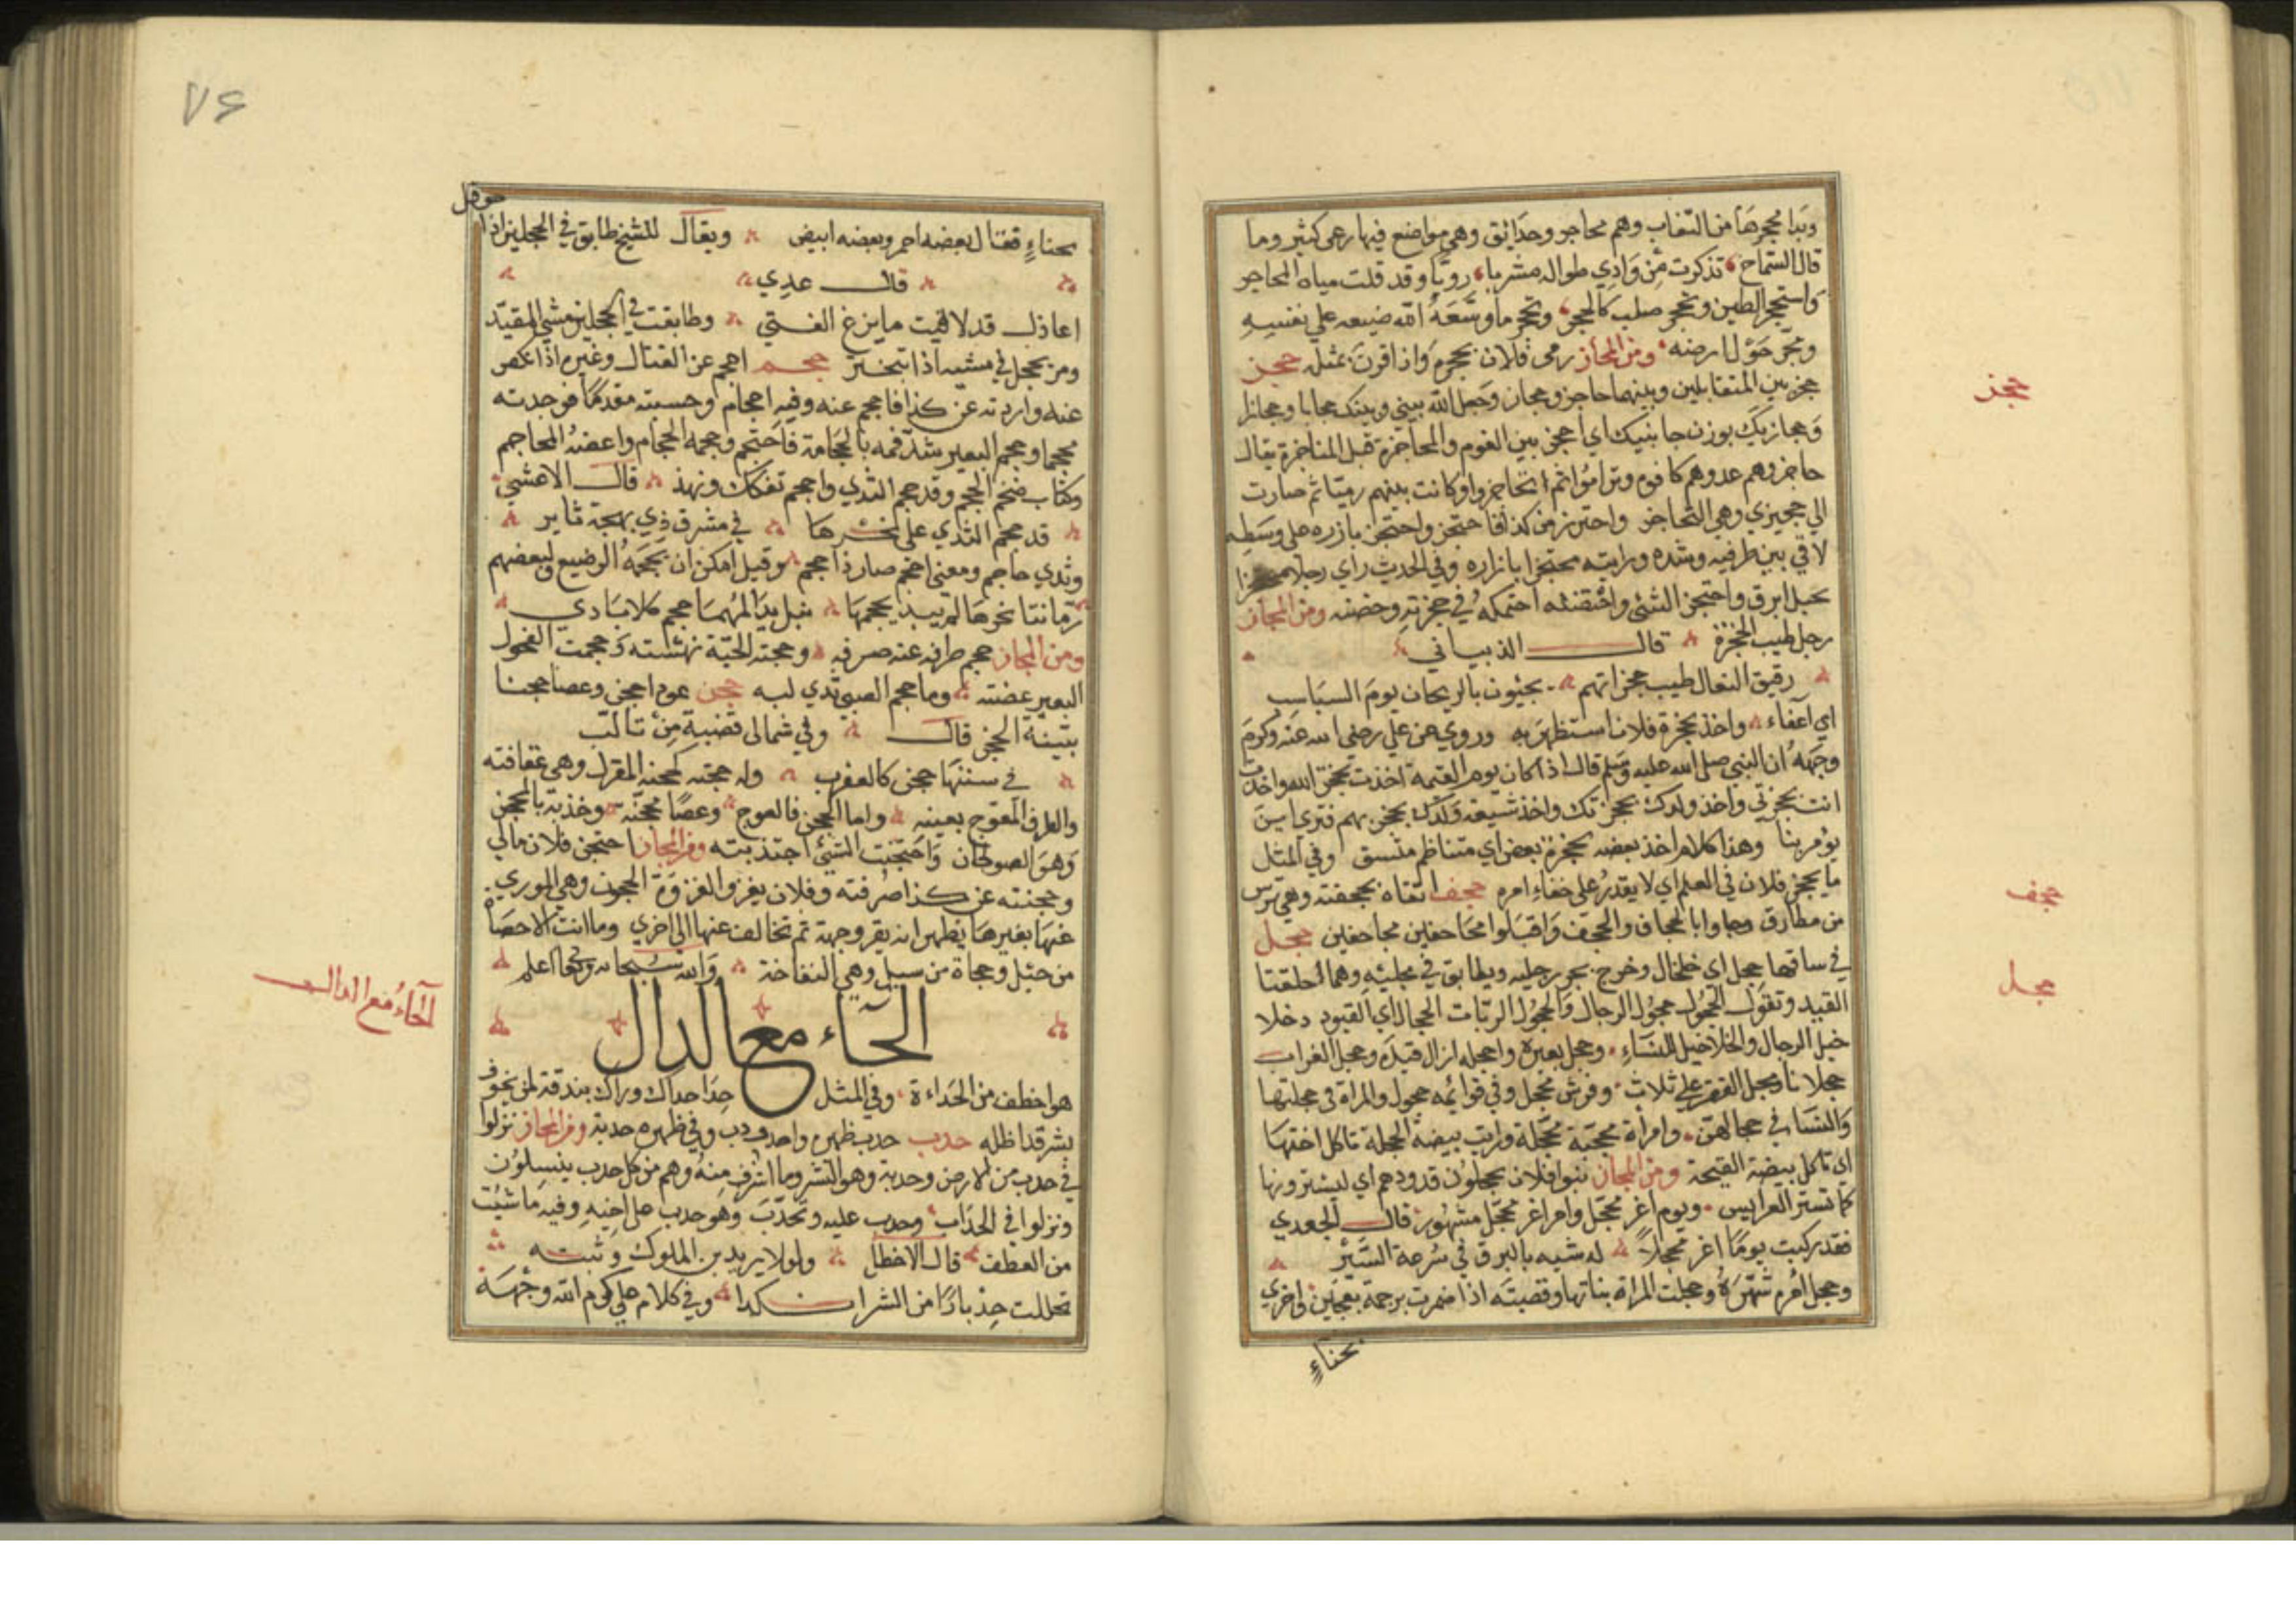 وبدا محجرها من النقاب وهم محاجر وحدائق وهي مواضع فيها رعى كثير وما
قال الشماخ تذكرت من وادي طوالة مشربا رويا وقد قلت مياه المحاجر
واستحجر الطين وتحجر صلب كالحجر وتحجر ما وسعه الله ضيعه على نفسه
وتحجر حول ارضه ومن المجاز رمى فلان بحجره واذا قرن بمثله حجز
حجز بين المتقابلين وبينهما حاجز وحجاز وجعل الله بيني وبينك حجابا وحجازا
وحجازيك بوزن حنانيك اي احجز بين القوم والمحاجزة قبل المناجزة يقال
حاجزوهم عدوهم كافوهم وتراموا ثم تحاجزوا وكانت بينهم رميا ثم صارت
الي حجيزي وهي التحاجز واحترز من كذا فاحتجز واحتجز بازاره على وسطه
لاقي بين طرفيه وشده ورايته محتجزا بازاره وفي الحديث راى رجلا محتجزا
بحبل ابرق واحتجز الشئ واحتضنه احتمله في حجزته وحضنه ومن المجاز
رجل طيب الحجزة قال الذبياني
رقيق النعال طيب حجزاتهم يحيون بالريحان يوم السباسب
اي اعفاء واخذ بحجزة فلان استظهر به وروي عن علي رضى الله عنه وكرم
وجهه ان النبي صلى الله عليه وسلم قال اذا كان يوم القيمة اخذت بحجزة الله واخذت
انت بحجزتي واخذ ولدك بحجزتك واخذ شيعة ولدك بحجزهم فترى اين
يؤمر بنا وهذا كلام اخذ بعضه بحجزة بعض اي متناظم متسق وفي المثل
ما يحجز فلان في العكم اي لا يقدر على خفاء امره حجف اتقاه بحجفته وهي ترس
من مطارق وجاوا بالحجاف والحجف واقبلوا محاحفين مجاحفين حجل
في ساقها حجل اي خلخال وخرج يجر رجليه ويطابق في حجليه وهما حلقتا
القيد وتقول الحجول حجول الرجال والحجول لربات الحجال اي القيود دخلا
خيل الرجال والخلاخيل للنساء وحجل بعيره واحجله ازال قيده وحجل الغراب
حجلانا وحجل الفقر على ثلاث وفرس محجل وفي قوائمه حجول والمراة في حجلتها
والنسا في حجالهن وامراة محجبة محجلة ورايت بيضة الحجلة تاكل اختها
اي تاكل بيضة القبجة ومن المجاز بنوا فلان يحجلون قدورهم اي ليسترونها
كما تستر العرايس ويوم اغر محجل وامر اغر محجل مشهور قال الجعدي
فقد ركبت يوما اغر محجلا له شبه بالبرق في سرعة السير
وحجل امره شهره وحجلت المراة بنانها وقصبته اذا ضمرت برجمة بعجين واخري
بحناء
حجز
حجف
حجل
٧٤
حوقل
بحناء فقنا ل بعضه احمر وبعضه ابيض ويقال للشيخ طابق في الحجلين اذا
قال عدي
اعاذل قد لاقيت ما يزع الفتي وطابقت في الحجلين مشي المقيد
ومن يحجل في مشيه اذا تبختر حجم احجم عن القتال وغيره اذا نكص
عنه واردته عن كذا فاحجم عنه وفيه احجام وحسبته مقدما فوجدته
محجما وحجم البعير شد فمه بالحجامة فاحتجم وحجمه الحجام واعضه المحاجم
وكتاب ضخم الحجم وقد حجم الثدي واحجم تفكك ونهد قال الاعشي
قد حجم الثدي على نحرها في مشرق ذي بهجة ناير
وثدي حاجم ومعنى احجم صار ذا حجم وقيل امكن ان يحجمه الرضيع ولبعضهم
رمانتا نحرها لم يبد بحجمها مثل بدا لمهما حجم كلا بادي
ومن المجاز حجم طرفه عنه صرفه وحجمته الحية نهشته وحجمت الفحول
البعير عضته وما حجم الصبي ثدي لبه حجن عود احجن وعصا حجنا
بينة الحجن قال وفي شمالي قضبة من تالب
في سننها حجن كالعقرب وله حجنة كحجنة المغزل وهي عقافته
والطرف المعوج بعينه واما الحجن فالعوج وعصا محجنة وخذبة بالمحجن
وهو الصولجان واحتجنت الشئ اجتذبته ومن المجاز احتجن فلان مالي
وحجنته عن كذا صرفته وفلان يغزو الغزوة الحجون وهي الموري
عنها بغيرها يظهر انه يقر وجهة ثم تخالف عنها الى اخري وما انت الا حصاة
من جبل وحجاة من سيل وهي النفاخة والله سبحانه وتعالى اعلم
الحاء مع الدال
هو اخطف من الحداءة وفي المثل حدا حداك وراك بندقة لمن يخوف
بشر قد اظله حدب حدب ظهره واحدودب وفي ظهره حدبة ومن المجاز نزلوا
في حدب من الارض وحدبة وهو النشز وما اشرف منه وهم من كل حدب ينسلون
ونزلوا في الحداب وحدب عليه وتحدب وهو حدب على اخيه وفيه ما شيت
من العطف قال الاخطل ولولا يزيد بن الملوك وثبته
تحللت حدبارا من الشر انكدا وفي كلام علي كرم الله وجهه
الحاء مع الدال